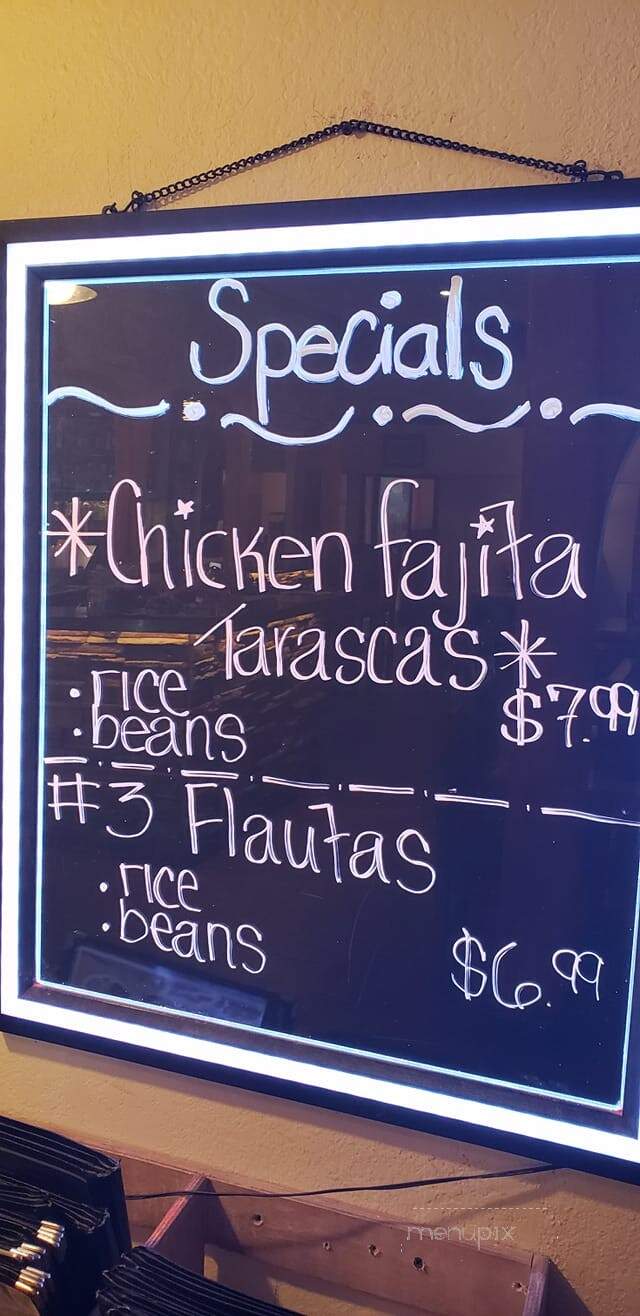 Specials
*Chicken fajita
Tarascas*
• rice
• beans
$7.99
#3 Flautas
• rice
• beans
$6.99
menupix